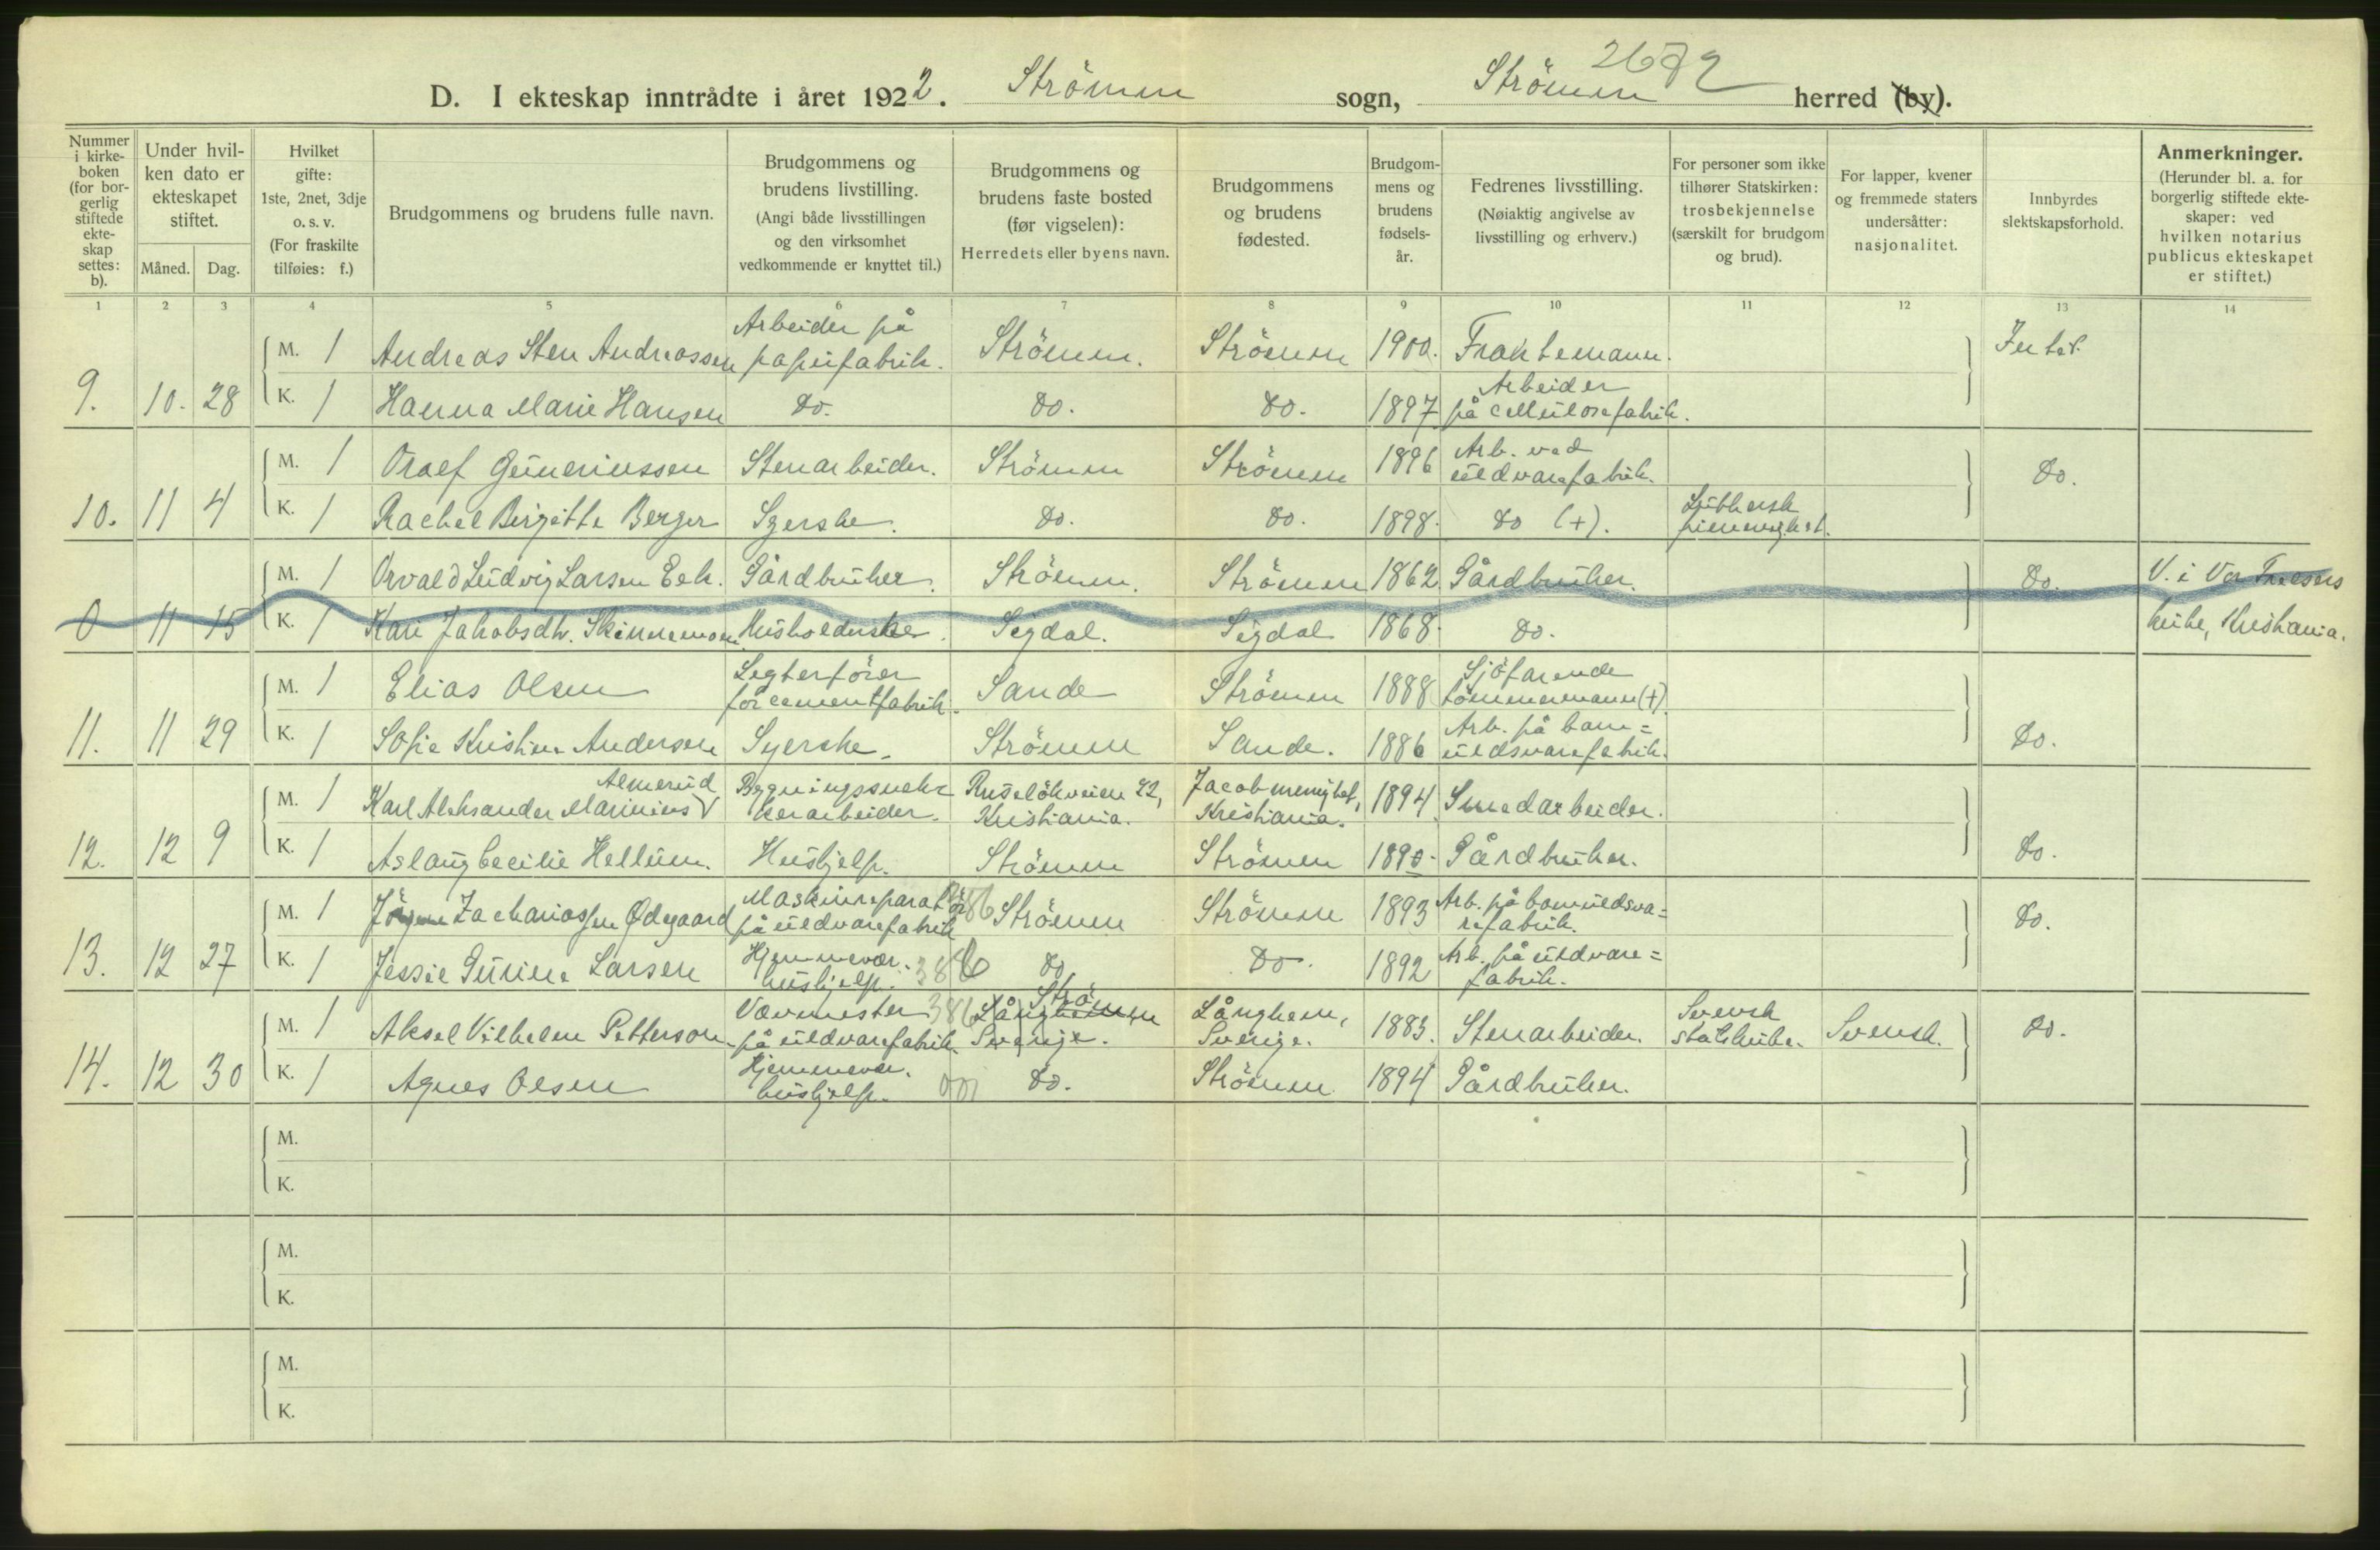 2672
D. I ekteskap inntrådte i året 1922. Strömm sogn, Strömm herred (by).
Nummer i kirke-boken (for bor-gerlig stiftede ekte-skap settes: b).
Under hvil-ken dato er ekteskapet stiftet.
Måned. Dag.
Hvilket gifte: 1ste, 2net, 3dje o. s. v. (For fraskilte tilføies: f.)
Brudgommens og brudens fulle navn.
Brudgommens og brudens livstilling. (Angi både livsstillingen og den virksomhet vedkommende er knyttet til.)
Brudgommens og brudens faste bosted (før vigselen): Herredets eller byens navn.
Brudgommens og brudens fødested.
Brudgom-mens og brudens fødsels-år.
Fedrenes livsstilling. (Nøiaktig angivelse av livsstilling og erhverv.)
For personer som ikke tilhører Statskirken: trosbekjennelse (særskilt for brudgom og brud).
For lapper, kvener og fremmede staters undersåtter: nasjonalitet.
Innbyrdes slektskapsforhold.
Anmerkninger. (Herunder bl. a. for borgerlig stiftede ekte-skaper: ved hvilken notarius publicus ekteskapet er stiftet.)
1 2 3 4 5 6 7 8 9 10 11 12 13 14
9. 10. 28
M. 1 Andreas Sten Andreassen Arbeider på papirfabrik. Strömm. Strömm 1900. Fraktemann. Intet.
K. 1 Hanna Marie Hansen do. do. do. 1897 Arbeider på cellulosefabrik.
10. 11 4
M. 1 Olaf Guneriussen Stenarbeider. Strömm Strömm 1896 Arb. ved uldvarefabrik. do.
K. 1 Rachel Birgitte Berger Syerske. do. do. 1898. do (+). Luthersk frimenighet.
0 11 15
M. 1 Orvald Ludvig Larsen Eek. Gårdbruker. Strömm. Strömm 1862 Gårdbruker. do. V. i Vor Frelsers
K. 1 Kari Jakobsdtr. Husholderske. Sigdal. Sigdal 1868. do. kirke, Kristiania.
11. 11 29
M. 1 Elias Olsen Legterförer for cementfabrik. Sande Strömm 1888 Sjöfarende tömmermann (+)
K. 1 Sofie Kristine Andersen Syerske. Strömm Sande. 1886 Arb. på bom=uldsvarefabrik. do.
12. 12 9
M. 1 Karl Aleksander Marinius Almerud Bygningssnekkerarbeider. Ruselökveien 42, Kristiania. Jacob menighet, Kristiania. 1894 Smedarbeider.
K. 1 Aslaug Cecilie Hellum. Hushjelp. Strömm Strömm 1890. Gårdbruker. do.
13. 12 27
M. 1 Jörgen Zachariassen Ødegaard Maskinreparatör på uldvarefabrik 386 Strömm Strömm 1893 Arb. på bomuldsva=refabrik. do.
K. 1 Jessie Gurine Larsen Hjemmevær. hushjelp. 386 do do. 1892 Arb. på uldvare=fabrik.
14. 12 30
M. 1 Aksel Vilhelm Petterson Vævmester på uldvarefabrik. 386 Långhem Strömm Sverige. Långhem, Sverige. 1883. Stenarbeider. Svensk statskirke. Svensk. do.
K. 1 Agnes Olsen Hjemmevær. hushjelp. do. Strömm 1894 Gårdbruker.
M.
K.
M.
K.
M.
K.